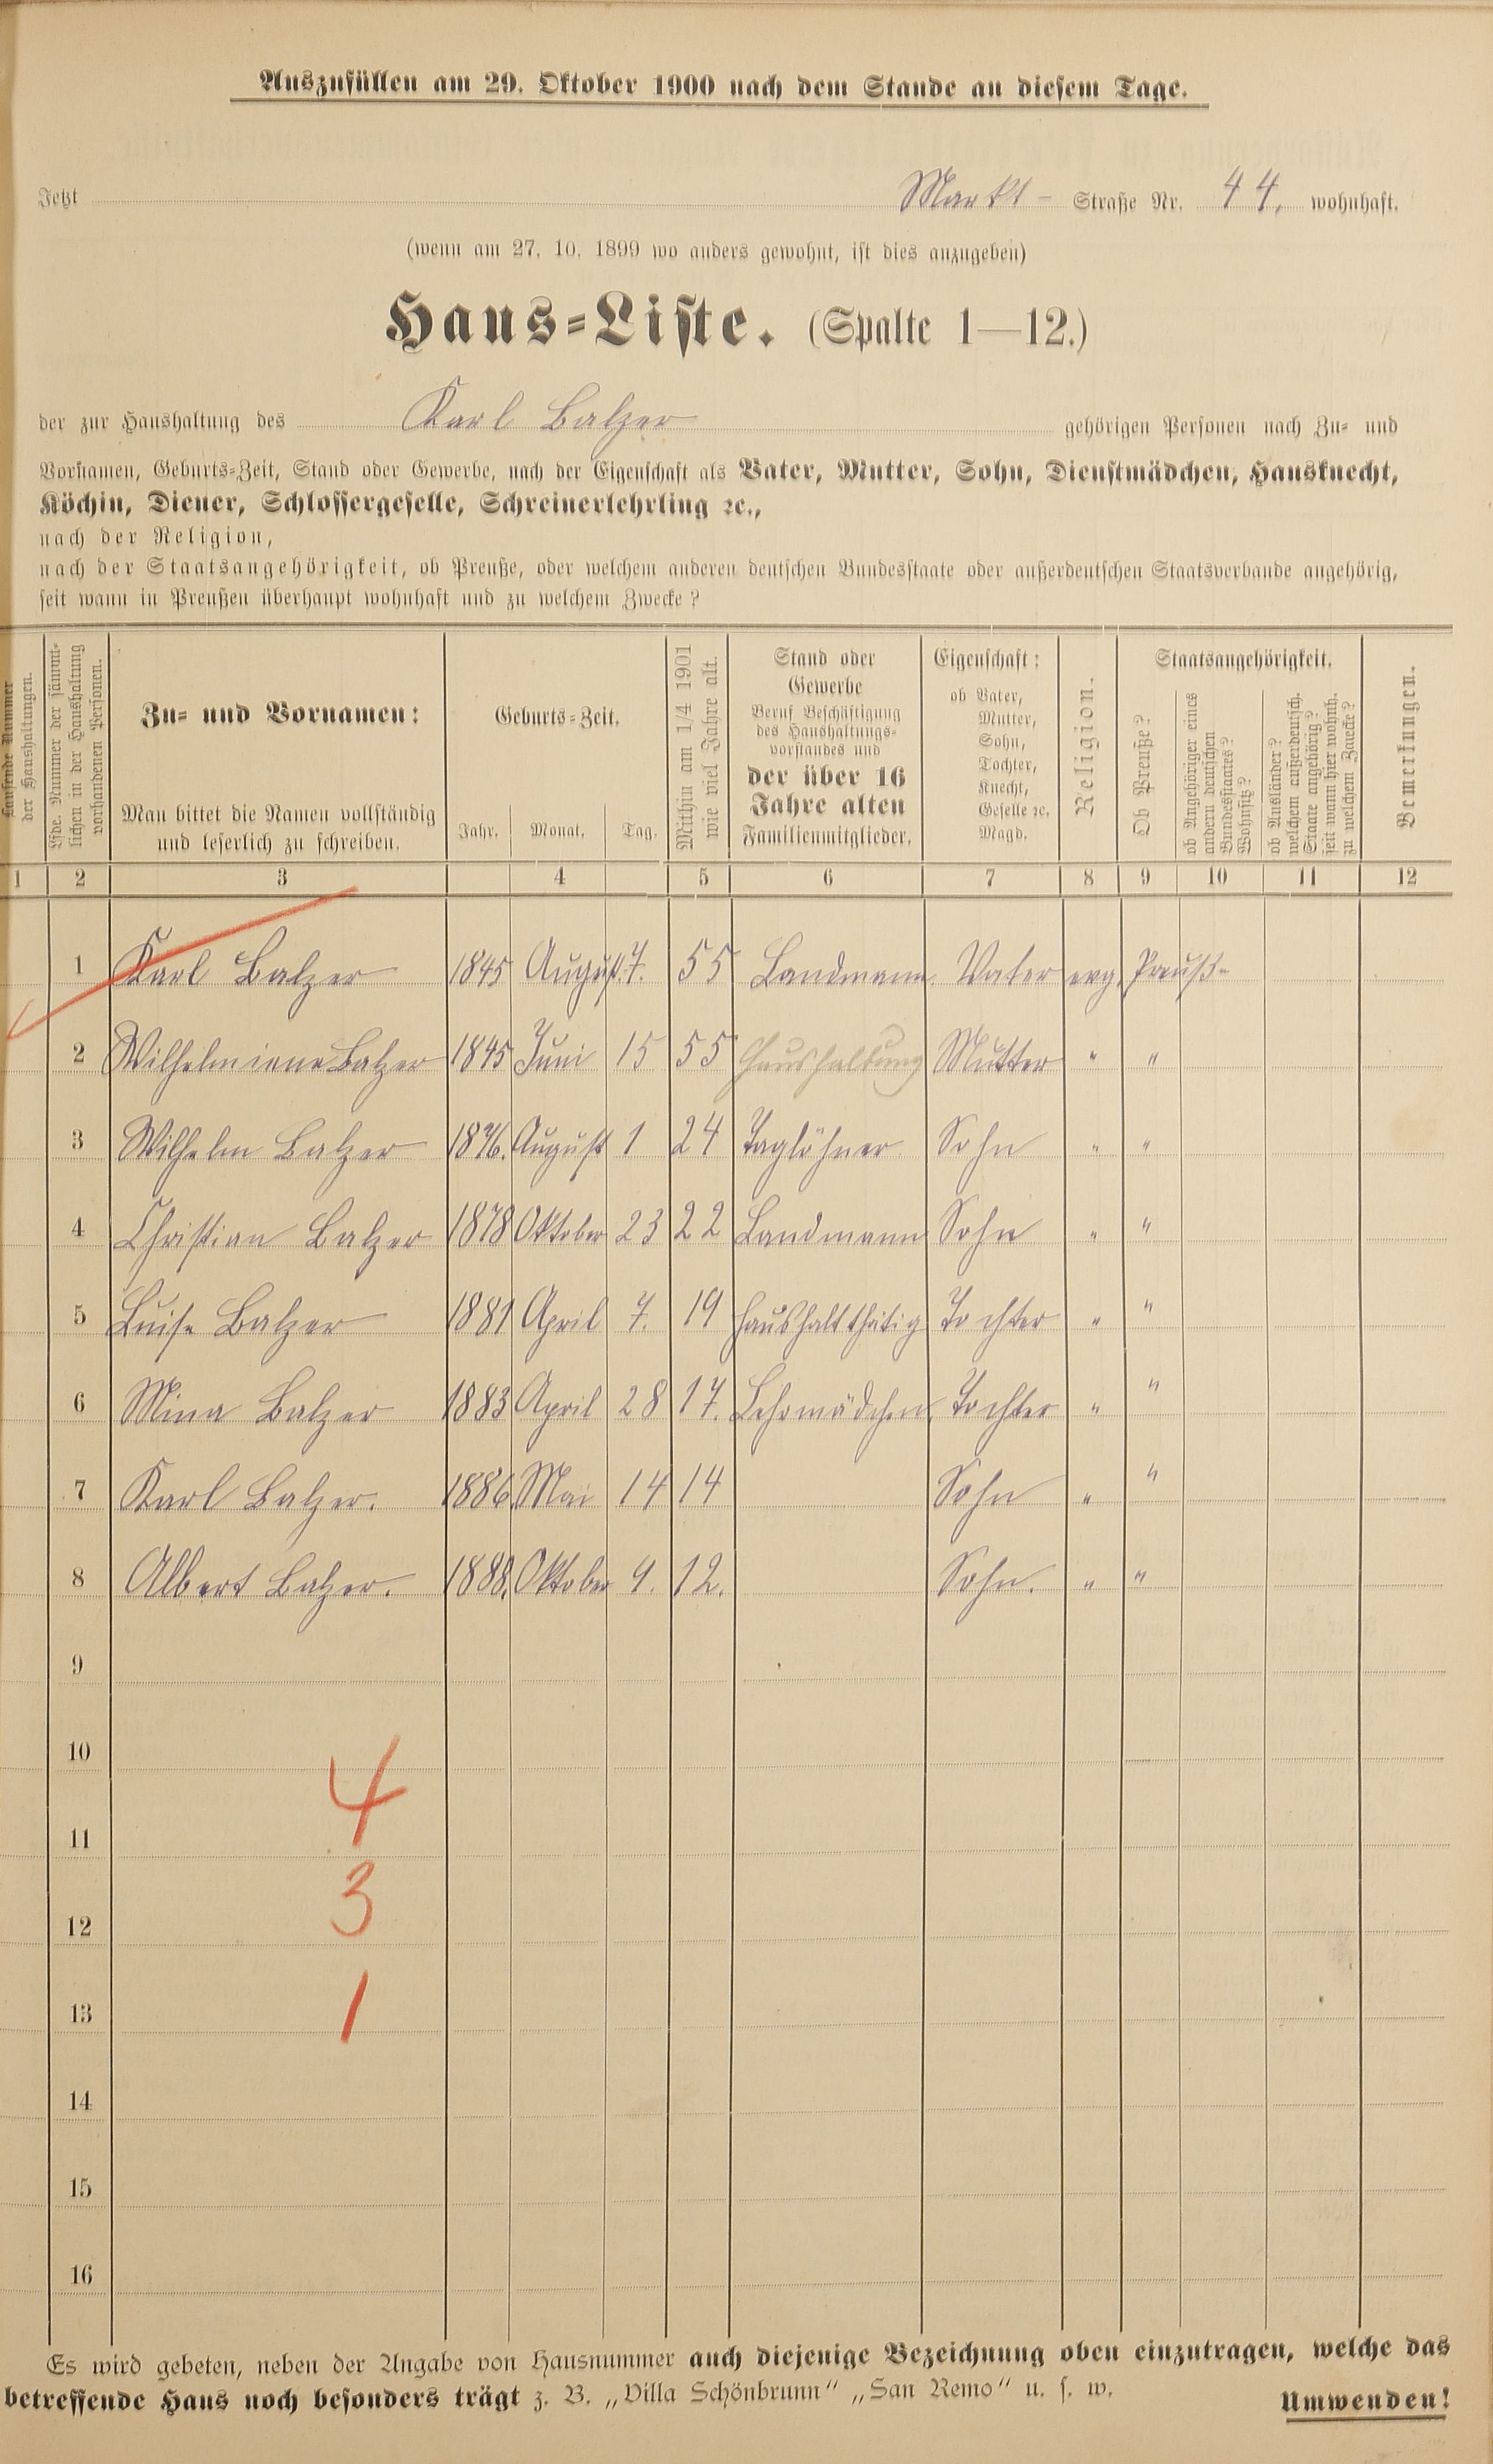 Auszufüllen am 29. Oktober 1900 nach dem Stande an diesem Tage.
Jetzt Markt- Straße Nr. 44. wohnhaft.
(wenn am 27. 10. 1899 wo anders gewohnt, ist dies anzugeben)
Haus-Liste. (Spalte 1—12.)
der zur Haushaltung des Karl Balzer gehörigen Personen nach Zu- und
Vornamen, Geburts-Zeit, Stand oder Gewerbe, nach der Eigenschaft als Vater, Mutter, Sohn, Dienstmädchen, Hausknecht,
Köchin, Diener, Schlossergeselle, Schreinerlehrling ꝛc.,
nach der Religion,
nach der Staatsangehörigkeit, ob Preuße, oder welchem anderen deutschen Bundesstaate oder außerdeutschen Staatsverbande angehörig,
seit wann in Preußen überhaupt wohnhaft und zu welchem Zwecke?
Laufende Nummer
der Haushaltungen.
Lfde. Nummer der sämmt-
lichen in der Haushaltung
vorhandenen Personen.
Zu- und Vornamen:
Man bittet die Namen vollständig
und leserlich zu schreiben.
Geburts-Zeit.
Jahr. Monat. Tag.
Mithin am 1/4 1901
wie viel Jahre alt.
Stand oder
Gewerbe
Beruf Beschäftigung
des Haushaltungs-
vorstandes und
der über 16
Jahre alten
Familienmitglieder.
Eigenschaft:
ob Vater,
Mutter,
Sohn,
Tochter,
Knecht,
Geselle ꝛc.
Magd.
Religion.
Staatsangehörigkeit.
Ob Preuße?
ob Angehöriger eines
andern deutschen
Bundesstaates?
Wohnsitz?
ob Ausländer?
welchem außerdeutsch.
Staate angehörig?
seit wann hier wohnh.
zu welchem Zwecke?
Bemerkungen.
1 2 3 4 5 6 7 8 9 10 11 12
1 Karl Balzer 1845 August 7. 55 Landmann. Vater evg. Preuß-
2 Wilhelmiene Balzer 1845 Juni 15 55 Haushaltung Mutter " "
3 Wilhelm Balzer 1876. August 1 24 Taglöhner Sohn " "
4 Christian Balzer 1878 Oktober 23 22 Landmann Sohn " "
5 Luise Balzer 1881 April 7. 19 Haushaltthätig Tochter " "
6 Mina Balzer 1883 April 28 17. Lehrmädchen Tochter " "
7 Karl Balzer. 1886. Mai 14 14 Sohn " "
8 Albert Balzer. 1888. Oktober 9. 12. Sohn. " "
9
10
4
11
3
12
1
13
14
15
16
Es wird gebeten, neben der Angabe von Hausnummer auch diejenige Bezeichnung oben einzutragen, welche das
betreffende Haus noch besonders trägt z. B. „Villa Schönbrunn" „San Remo" u. s. w.
Umwenden!